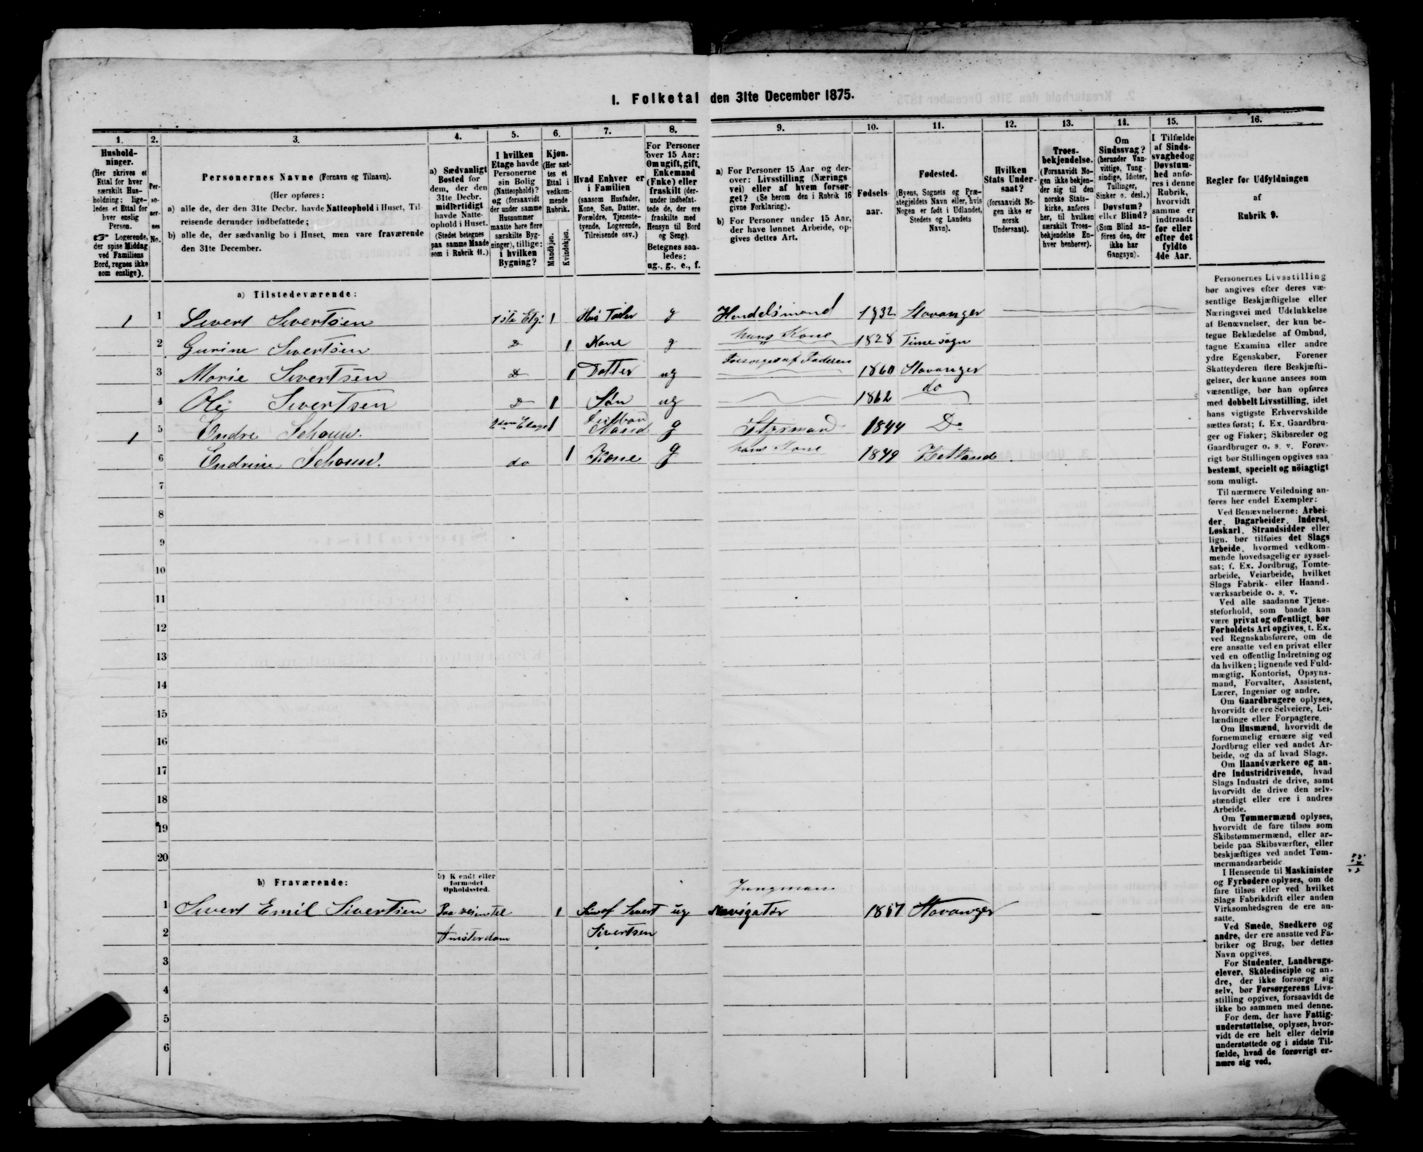 1. Folketal den 31te December 1875.
1. 2. 3. 4. 5. 6. 7. 8. 9. 10. 11. 12. 13. 14. 15. 16.
Hushold-
ninger.
(Her skrives et
Ettal for hver
særskilt Hus-
holdning; lige-
ledes et Ettal for
hver enslig
Person.
☞ Logerende,
der spise Middag
ved Familiens
Bord, regnes ikke
som enslige).
Per-
so-
ner-
nes
No.
Personernes Navne (Fornavn og Tilnavn).
(Her opføres:
a) alle de, der den 31te Decbr. havde Natteophold i Huset, Til-
reisende derunder indbefattede;
b) alle de, der sædvanlig bo i Huset, men vare fraværende
den 31te December.
a) Sædvanligt
Bosted for
dem, der den
31te Decbr.
midlertidigt
havde Natte-
ophold i Huset.
(Stedet betegnes
paa samme Maade
som i Rubrik 11.)
I hvilken
Etage havde
Personerne
sin Bolig
(Natteophold)?
og (forsaavidt
der under samme
Husnummer
maatte høre flere
særskilte Byg-
ninger), tillige:
i hvilken
Bygning?
Kjøn.
(Her sæt-
tes et
Ettal i
vedkom-
mende
Rubrik.
Mandkjøn.
Kvindekjøn.
Hvad Enhver er
i Familien
(saasom Husfader,
Kone, Søn, Datter,
Forældre, Tjeneste-
tyende, Logerende,
Tilreisende osv.)
For Personer
over 15 Aar:
Om ugift, gift,
Enkemand
(Enke) eller
fraskilt (der-
under indbefat-
tede de, der ere
fraskilte med
Hensyn til Bord
og Seng).
Betegnes saa-
ledes:
ug., g., e., f.
a) For Personer 15 Aar og der-
over: Livsstilling (Nærings-
vei) eller af hvem forsør-
get? (Se herom den i Rubrik 16
givne Forklaring).
b) For Personer under 15 Aar,
der have lønnet Arbeide, op-
gives dettes Art.
Fødsels-
aar.
Fødested.
(Byens, Sognets og Præ-
stegjeldets Navn eller, hvis
Nogen er født i Udlandet,
Stedets og Landets
Navn).
Hvilken
Stats Under-
saat?
(forsaavidt No-
gen ikke er
norsk
Undersaat).
Troes-
bekjendelse.
(Forsaavidt No-
gen ikke bekjen-
der sig til den
norske Stats-
kirke, anføres
her, til hvilken
særskilt Troes-
bekjendelse En-
hver henhører).
Om
Sindssvag?
(herunder Van-
vittige, Tung-
sindige, Idioter,
Tullinger,
Sinker o. desl.)
Døvstum?
eller Blind?
(Som Blind an-
føres den, der
ikke har
Gangsyn).
I Tilfælde
af Sinds-
svaghed og
Døvstum-
hed anfø-
res i denne
Rubrik,
hvorvidt
samme er
indtraadt
før eller
efter det
fyldte
4de Aar.
Regler for Udfyldningen
af
Rubrik 9.
a) Tilstedeværende:
1 1 Sivert Sivertsen 1ste Etg: 1 Hus Fader g Handelsmand 1832 Stavanger
2 Gurine Sivertsen D 1 Kone g hans Kone 1828 Time sogn
3 Marie Sivertsen D 1 Datter ug Forsørges af Faderen 1860 Stavanger
4 Ole Sivertsen D 1 Søn ug 1862 do
1 5 Endre Schouw. 2den Etage 1 g Styrmand 1844 Do
6 Endrine Schouw. do 1 Kone g hans Kone 1849
7
8
9
10
11
12
13
14
15
16
17
18
19
20
b) Fraværende:
b) Kendt eller
formodet
Opholdssted.
Jungman
1 Sivert Emil Sivertsen Paa reise til 1 Sivert ug Navigatør 1857 Stavanger
2 Amsterdam Sivertsen
3
4
5
6
Personernes Livsstilling
bør angives efter deres væ-
sentlige Beskjæftigelse eller
Næringsvei med Udelukkelse
af Benævnelser, der kun be-
tegne Beklædelse af Ombud,
tagne Examina eller andre
ydre Egenskaber. Forener
Skatteyderen flere Beskjæfti-
gelser, der kunne ansees som
væsentlige, bør han opgives
med dobbelt Livsstilling, idet
hans vigtigste Erhvervskilde
sættes først; f. Ex. Gaardbru-
ger og Fisker; Skibsreder og
Gaardbruger o. s. v. Forøv-
rigt bør Stillingen opgives saa
bestemt, specielt og nøiagtigt
som muligt.
Til nærmere Veiledning an-
føres her endel Exempler:
Ved Benævnelserne: Arbei-
der, Dagarbeider, Inderst,
Løskarl, Strandsidder eller
lign. bør tilføies det Slags
Arbeide, hvormed vedkom-
mende hovedsagelig er syssel-
sat; f. Ex. Jordbrug, Tomte-
arbeide, Veiarbeide, hvilket
Slags Fabrik- eller Haand-
værksarbeide o. s. v.
Ved alle saadanne Tjene-
steforhold, som baade kan
være privat og offentligt, bør
Forholdets Art opgives, t. Ex.
ved Regnskabsførere, om de
ere ansatte ved en privat eller
ved en offentlig Indretning og
da hvilken; lignende ved Fuld-
mægtig, Kontorist, Opsyns-
mand, Forvalter, Assistent,
Lærer, Ingeniør og andre.
Om Gaardbrugere oplyses,
hvorvidt de ere Selveiere, Lei-
lændinge eller Forpagtere.
Om Husmænd, hvorvidt de
fornemmelig ernære sig ved
Jordbrug eller ved andet Ar-
beide, og da af hvad Slags.
Om Haandværkere og an-
dre Industridrivende, hvad
Slags Industri de drive, samt
hvorvidt de drive den selv-
stændigt eller ere i andres
Arbeide.
Om Tømmermænd oplyses,
hvorvidt de fare tilsøs som
Skibstømmermænd, eller ar-
beide paa Skibsværfter, eller
beskjæftiges ved andet Tøm-
mermandsarbeide.
I Henseende til Maskinister
og Fyrbødere oplyses, om de
fare tilsøs eller ved hvilket
Slags Fabrikdrift eller anden
Virksomhedsgren de ere an-
satte.
Ved Smede, Snedkere og
andre, der ere ansatte ved Fa-
briker og Brug, bør dettes
Navn opgives.
For Studenter, Landbrugs-
elever, Skoledisciple og an-
dre, der ikke forsørge sig
selv, bør Forsørgerens Livs-
stilling opgives, forsaavidt de
ikke bo sammen med denne.
For dem, der have Fattig-
understøttelse, oplyses, hvor-
vidt de ere helt eller delvis
understøttede og i sidste Til-
fælde, hvad de forøvrigt er-
nære sig ved.